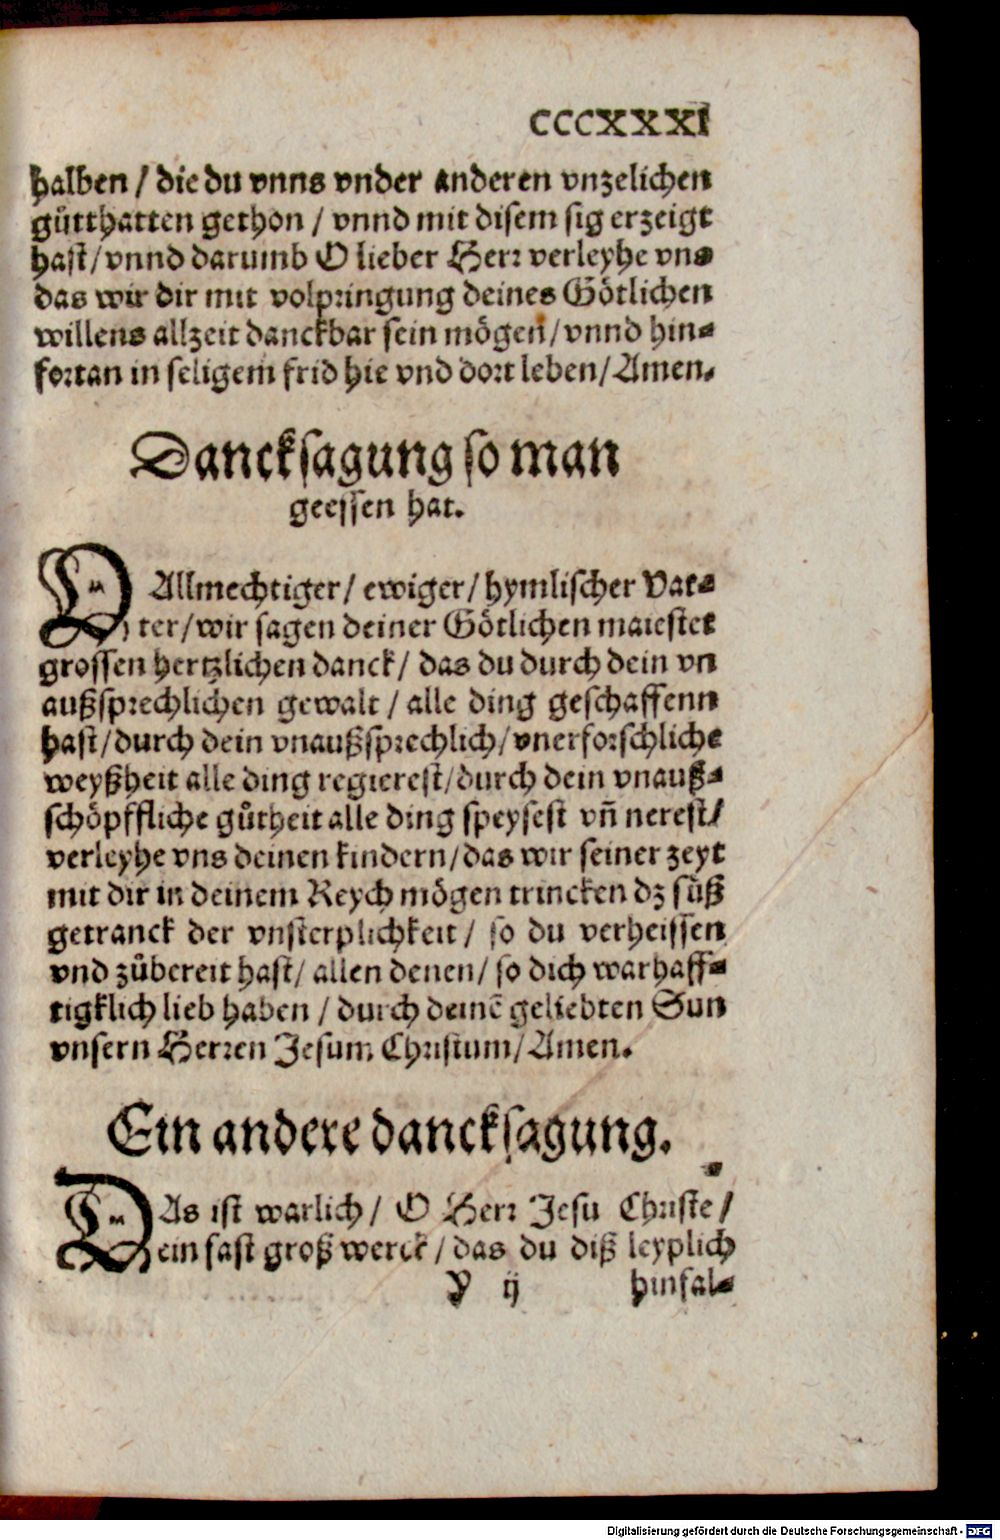 CCCXXXI
halben / die du vnns vnder anderen vnzelichen
gůtthatten gethon / vnnd mit disem sig erzeigt
hast / vnnd darumb O lieber Herr verleyhe vns
das wir dir mit volpringung deines Götlichen
willens allzeit danckbar sein mögen / vnnd hin⸗
fortan in seligem frid hie vnd dort leben / Amen.
Dancksagung so man
geessen hat.
O Allmechtiger / ewiger / hymlischer Vat⸗
ter / wir sagen deiner Götlichen maiestet
grossen hertzlichen danck / das du durch dein vn
außsprechlichen gewalt / alle ding geschaffenn
hast / durch dein vnaußsprechlich / vnerforschliche
weyßheit alle ding regierest / durch dein vnauß⸗
schöpffliche gůtheit alle ding speysest vn̄ nerest /
verleyhe vns deinen kindern / das wir seiner zeyt
mit dir in deinem Reych mögen trincken dz süß
getranck der vnsterplichkeit / so du verheissen
vnd zůbereit hast / allen denen / so dich warhaff⸗
tigklich lieb haben / durch deinē geliebten Sun
vnsern Herren Jesum Christum / Amen.
Ein andere dancksagung.
DAs ist warlich / O Herr Jesu Christe /
ein fast groß werck / das du diß leyplich
Y ij hinfal⸗
Digitalisierung gefördert durch die Deutsche Forschungsgemeinschaft - DFG